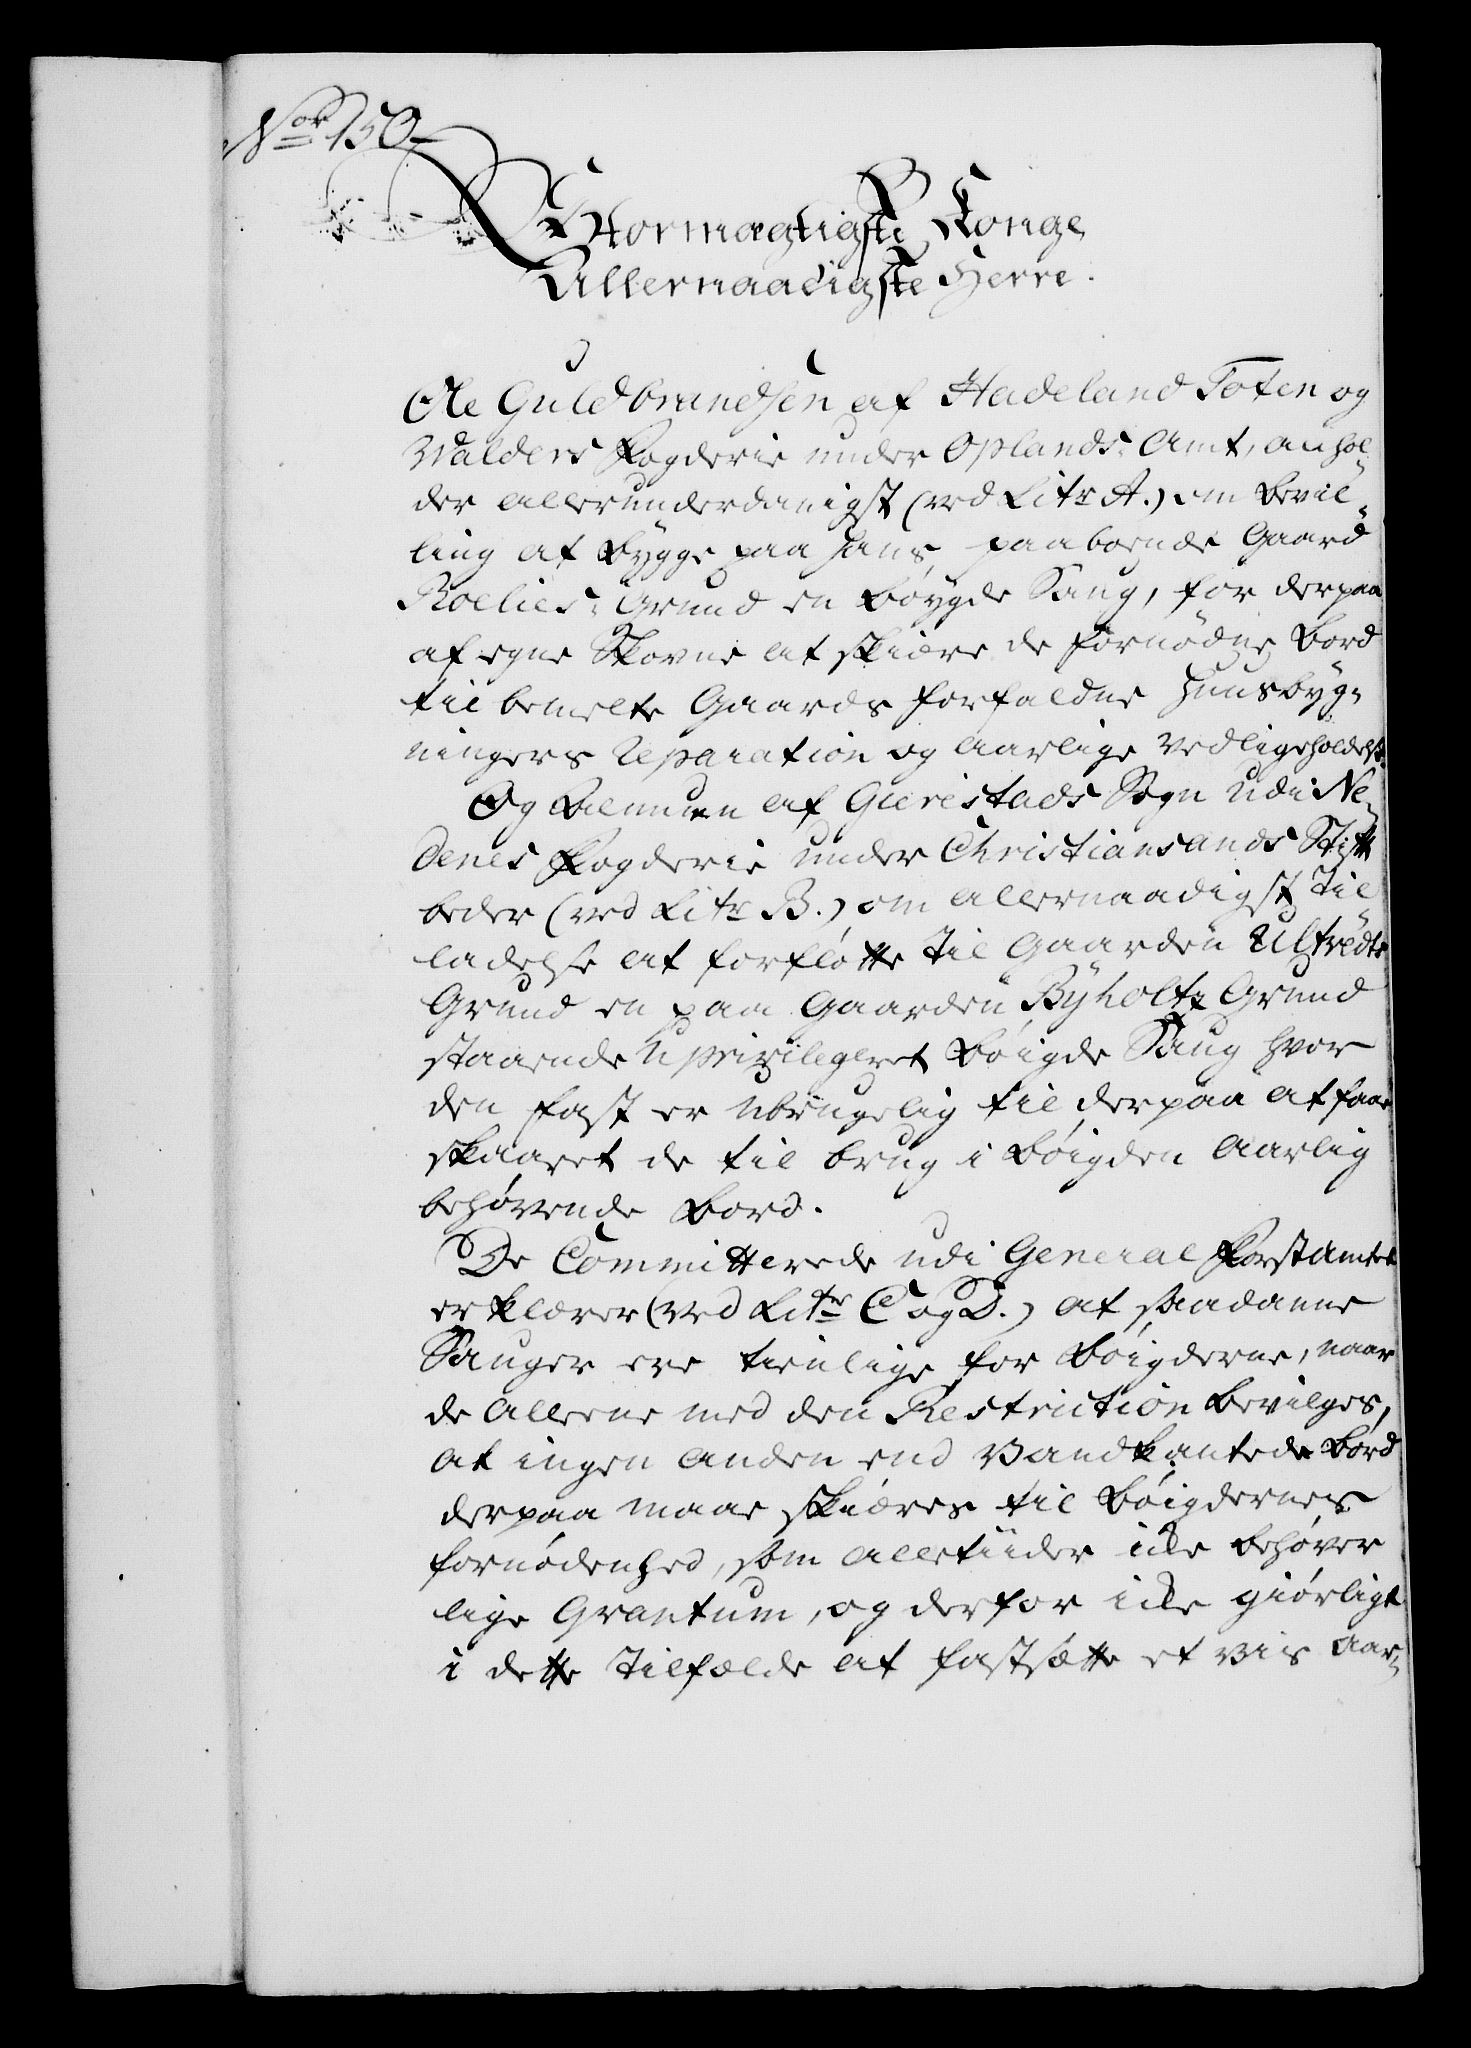 Nor 150
Stormægtigste Konge
Allernaadigste Herre.
Ole Guldbrandsen af Hadeland Toten og
Walders Fogderie under Oplands Amt, anhol-
der allerunderdanigst (ved Litr A.) om Bevil-
ling at bygge paa hans paaboende Gaard
Roelies Grund en bøygde Saug, for derpaa
af egne Skovne at skiære de fornødne Bord
til bemelte Gaards forfaldne Huusbyg-
ningers Reparation og aarlige Vedligeholdelse.
Og Almuen af Gierestads Sogn udi Ne-
denes Fogderie under Christiansands Stift
beder (ved Litr B.) om allernaadigst Til-
ladelse at forfløtte til Gaarden Ulltvedts
Grund en paa Gaarden Byholts Grund
staaende Upriviligeret bøigde Saug hvor
den fast er ubrugelig til derpaa at faae
skaaret de til brug i Bøigden aarlig
behøvende Bord.
De Committerede udi General Forstamtet
erklærer (ved Litr C og D.) at saadanne
Sauger ere tienlige for Bøigderne, naar
de allene med den Restriction bevilges,
at ingen anden end Vandkantede Bord
derpaa maae skiæres til Bøigdernes
fornødenhed, som alletiider ikke behøver
lige Qvantum, og derfor ikke giørligt
i dette Tilfælde at fastsætte et vis aar-